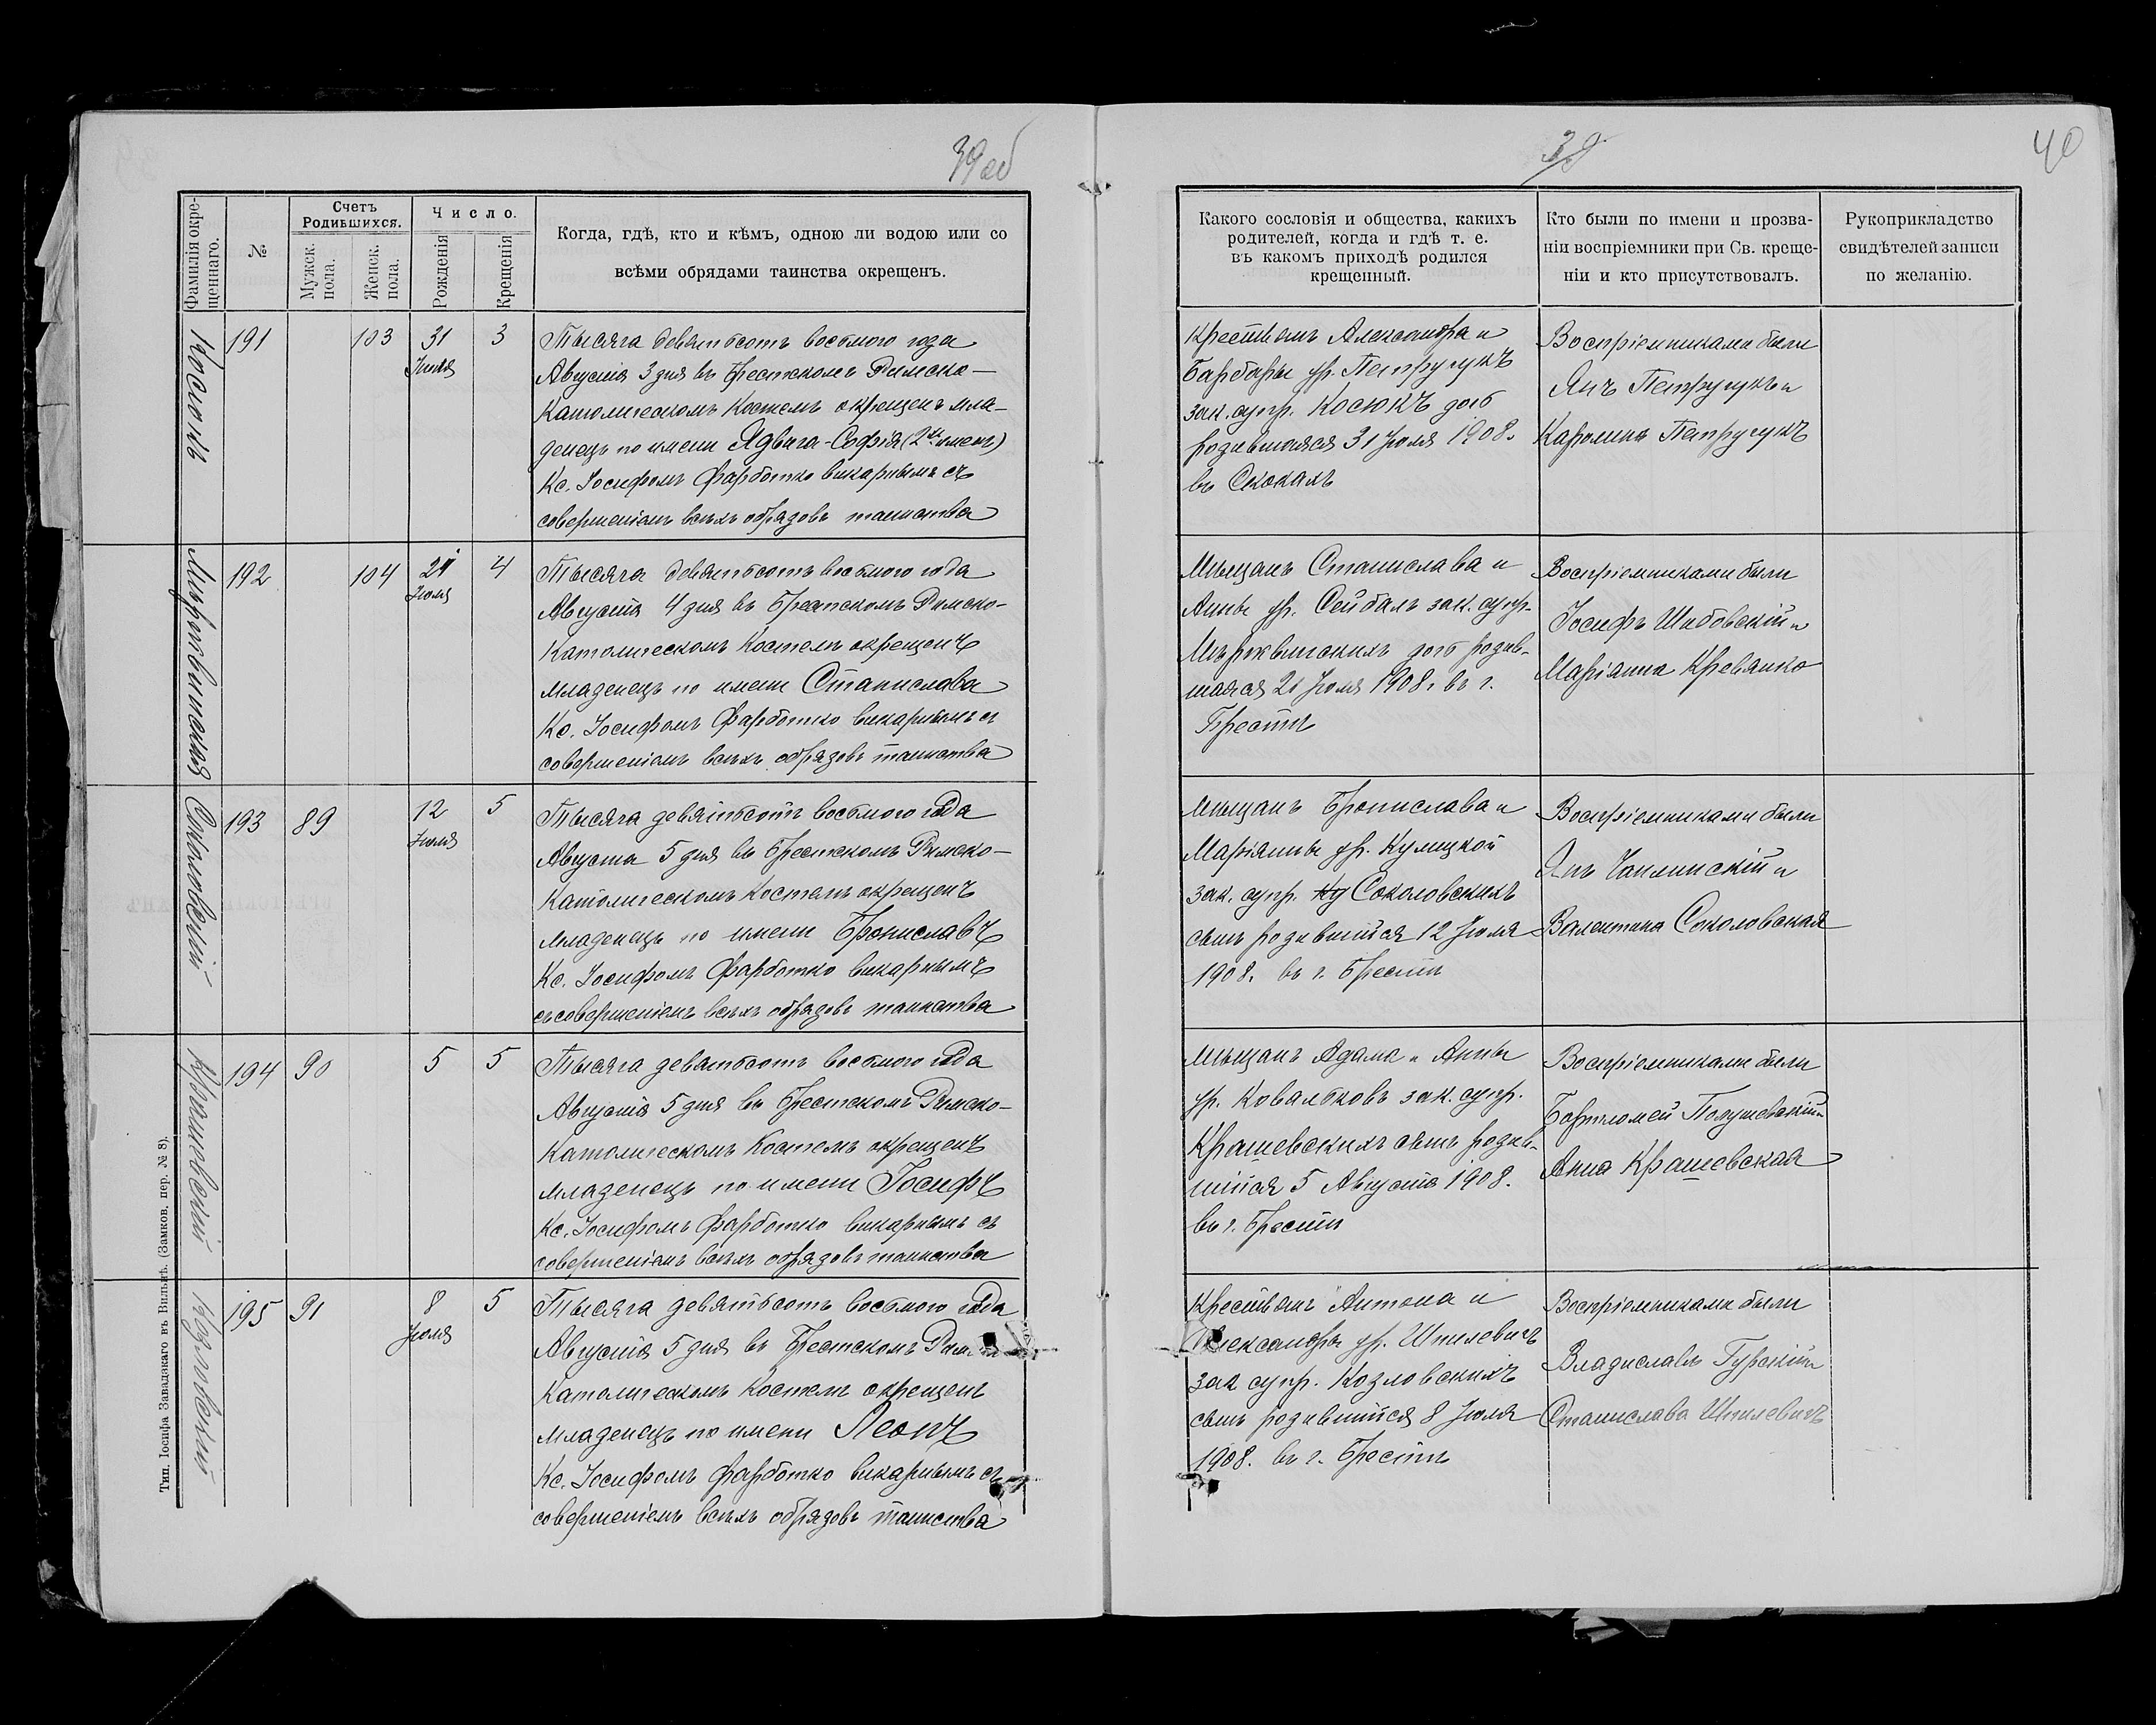 39 об
38
40
Фамилія окре-
щеннаго.
№
Счетъ
Родившихся.
Мужск.
пола.
Женск.
пола.
Число.
Рожденія
Крещенія
Когда, гдѣ, кто и кѣмъ, одною ли водою или со
всѣми обрядами таинства окрещенъ.
Какого сословія и общества, какихъ
родителей, когда и гдѣ т. е.
въ какомъ приходѣ родился
крещенный.
Кто были по имени и прозва-
ніи воспріемники при Св. креще-
ніи и кто присутствовалъ.
Рукоприкладство
свидѣтелей записи
по желанію.
Косюкъ
191
103
31
Іюля
3
Тысяча девятьсотъ восьмого года
Августа 3 дня въ Брестскомъ Римско-
Католическомъ Костелѣ окрещенъ мла-
денецъ по имени Ядвига-Софія (2хъ именъ)
Кс. Іосифомъ Фарботко викарнымъ съ
совершеніемъ всѣхъ обрядовъ таинства
Крестьянъ Александра и
Барбары ур. Петручукъ
зак. супр. Косюкъ дочь
родившаяся 31 Іюля 1908.
въ Скокахъ
Воспріемниками были
Янъ Петручукъ и
Каролина Петручукъ
192
104
21
Іюля
4
Тысяча девятьсотъ восьмого года
Августа 4 дня въ Брестскомъ Римско-
Католическомъ Костелѣ окрещенъ
младенецъ по имени Станислава
Кс. Іосифомъ Фарботко викарнымъ съ
совершеніемъ всѣхъ обрядовъ таинства
Мѣщанъ Станислава и
Анны ур. Сейбалъ зак. супр.
дочь родив-
шаяся 21 Іюля 1908. въ г.
Брестѣ
Воспріемниками были
Іосифъ Шабовскій и
Маріанна Кревянко
Соколовскій
193
89
12
Іюля
5
Тысяча девятьсотъ восьмого года
Августа 5 дня въ Брестскомъ Римско-
Католическомъ Костелѣ окрещенъ
младенецъ по имени Брониславъ
Кс. Іосифомъ Фарботко викарнымъ
съ совершеніемъ всѣхъ обрядовъ таинства
Мѣщанъ Бронислава и
Маріанны ур. Кулицкой
зак. супр. Ку Соколовскихъ
сынъ родившійся 12 Іюля
1908. въ г. Брестѣ
Воспріемниками были
Янъ Чаплинскій и
Валентина Соколовская
Крашевскій
194
90
5
5
Тысяча девятьсотъ восьмого года
Августа 5 дня въ Брестскомъ Римско-
Католическомъ Костелѣ окрещенъ
младенецъ по имени Іосифъ
Кс. Іосифомъ Фарботко викарнымъ съ
совершеніемъ всѣхъ обрядовъ таинства
Мѣщанъ Адама и Анны
ур. Ковальковъ зак. супр.
Крашевскихъ сынъ родив-
шійся 5 Августа 1908.
въ г. Брестѣ
Воспріемниками были
Бартломей
Анна Крашевская
Козловскій
195
91
8
Іюля
5
Тысяча девятьсотъ восьмого года
Августа 5 дня въ Брестскомъ
Католическомъ Костелѣ окрещенъ
младенецъ по имени Леонъ
Кс. Іосифомъ Фарботко викарнымъ съ
совершеніемъ всѣхъ обрядовъ таинства
Крестьянъ Антона и
Александры ур. Шпилевичъ
зак супр. Козловскихъ
сынъ родившійся 8 Іюля
1908. въ г. Брестѣ
Воспріемниками были
Владиславъ Гурскій и
Станислава Шпилевичъ
Тип. Іосифа Завадзкаго въ Вильнѣ. (Замков. пер. № 8).